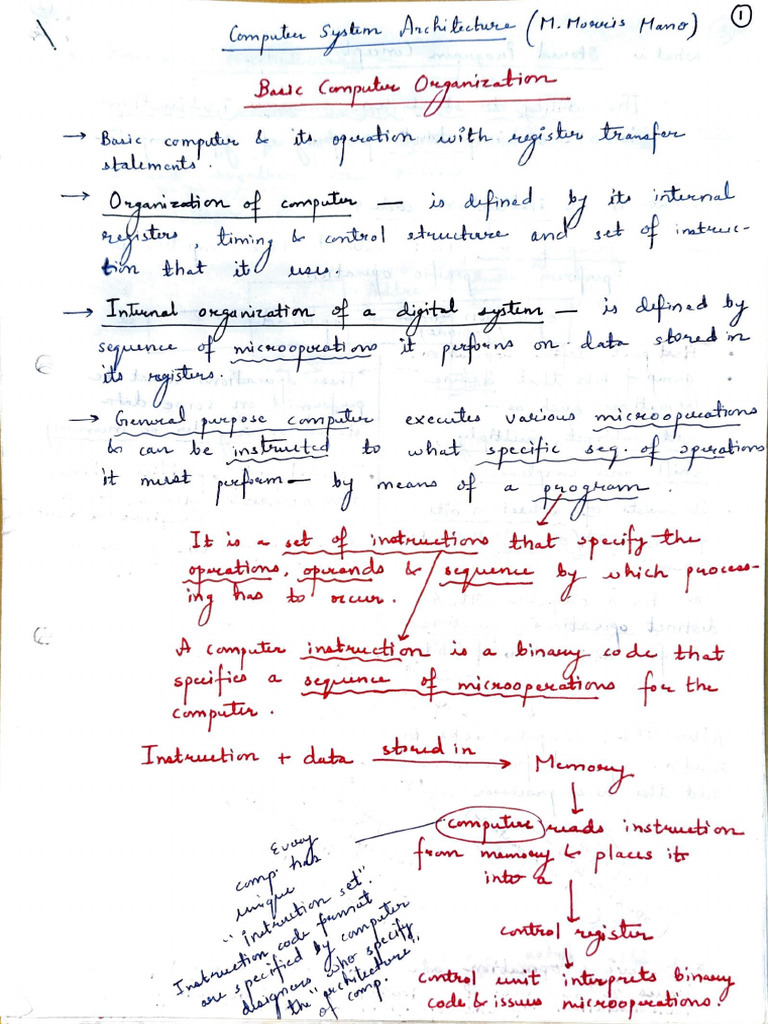 Computer System Architecture (M. Morris Mano) 1
Basic Computer Organization
→ Basic computer & its operation with register transfer
statements.
→ Organization of computer — is defined by its internal
registers, timing & control structure and set of instruc-
tion that it uses.
→ Internal organization of a digital system — is defined by
sequence of microoperations it performs on data stored in
its registers.
→ General purpose computer executes various microoperations
& can be instructed to what specific seq. of operations
it must perform — by means of a program.
It is a set of instructions that specify the
operations, operands & sequence by which process-
ing has to occur.
A computer instruction is a binary code that
specifies a sequence of microoperations for the
computer.
Instruction + data stored in → Memory
↓
computer reads instruction
from memory & places it
into a
↓
control register
↓
control unit interprets binary
code & issues microoperations.
Every
comp. has
unique
"instruction set".
Instruction code format
are specified by computer
designers who specify
the "architecture"
of comp.